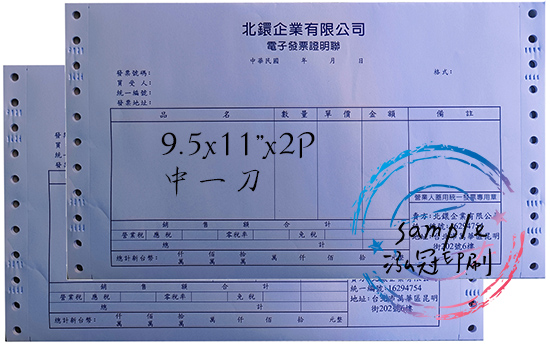 北鐶企業有限公司
電子發票證明聯
中華民國 年 月 日
發票號碼:
買受人:
統一編號:
發票地址:
格式:
品 名 數量 單價 金額 備註
9.5x11"x2P
中一刀
營業人蓋用統一發票專用章
賣方:北鐶企業有限公司
統一編號:16294754
地址:台北市萬華區昆明
街202號6樓
sample
泓冠印刷
銷售額合計
營業稅 應稅 零稅率 免稅
總計
總計新台幣: 仟 佰 拾 萬 仟 佰 拾 元整
銷售額合計
營業稅 應稅 零稅率 免稅
總計新台幣: 仟萬 佰萬 拾萬 萬 仟 佰 拾 元整
統一編號:16294754
地址:台北市萬華區昆明
街202號6樓